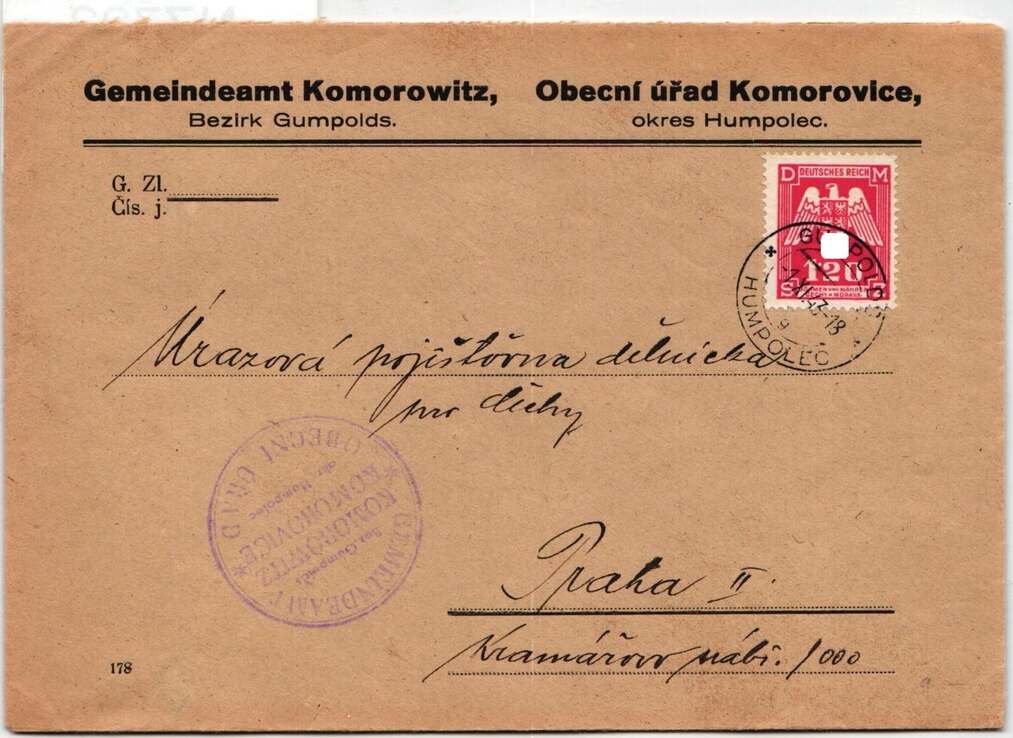 Gemeindeamt Komorowitz,
Bezirk Gumpolds.
Obecní úřad Komorovice,
okres Humpolec.
G. Zl.
Čís. j.
D DEUTSCHES REICH M
1·20
BÖHMEN UND MÄHREN
ČECHY A MORAVA
GUMPOLDS
HUMPOLEC
Úrazová pojišťovna dělnická
pro Čechy
* GEMEINDEAMT
OBECNÍ ÚŘAD *
KOMOROWITZ
Bez. Gumpolds
okr. Humpolec
KOMOROVICE
Praha II.
Kramářovo nábř. 1000
178